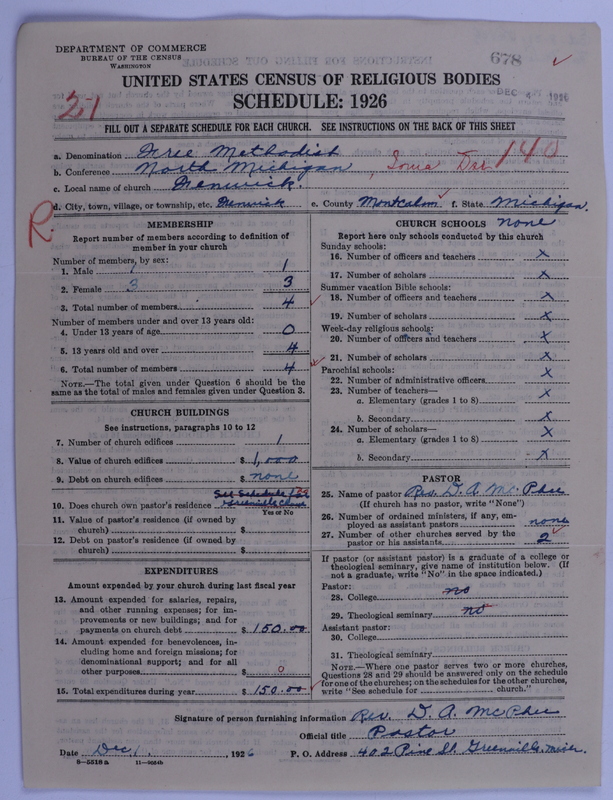 DEPARTMENT OF COMMERCE
BUREAU OF THE CENSUS
WASHINGTON
678
DEC 4 1926
UNITED STATES CENSUS OF RELIGIOUS BODIES
SCHEDULE: 1926
21
FILL OUT A SEPARATE SCHEDULE FOR EACH CHURCH. SEE INSTRUCTIONS ON THE BACK OF THIS SHEET
a. Denomination Free Methodist
140
b. Conference North Michigan, Ionia Dist
c. Local name of church Fenwick.
d. City, town, village, or township, etc. Fenwick e. County Montcalm f. State Michigan.
R.
MEMBERSHIP
Report number of members according to definition of
member in your church
Number of members, by sex:
1. Male 1 1
2. Female 3 3
3. Total number of members 4
Number of members under and over 13 years old:
4. Under 13 years of age 0
5. 13 years old and over 4
6. Total number of members 4
NOTE.—The total given under Question 6 should be the
same as the total of males and females given under Question 3.
CHURCH BUILDINGS
See instructions, paragraphs 10 to 12
7. Number of church edifices 1
8. Value of church edifices $ 1,000
9. Debt on church edifices $ none
See Schedule for
10. Does church own pastor's residence Greenville Church
Yes or No
11. Value of pastor's residence (if owned by
church) $
12. Debt on pastor's residence (if owned by
church) $
EXPENDITURES
Amount expended by your church during last fiscal year
13. Amount expended for salaries, repairs,
and other running expenses; for im-
provements or new buildings; and for
payments on church debt $ 150.00
14. Amount expended for benevolences, in-
cluding home and foreign missions; for
denominational support; and for all
other purposes $ 0
15. Total expenditures during year $ 150.00
CHURCH SCHOOLS none
Report here only schools conducted by this church
Sunday schools:
16. Number of officers and teachers x
17. Number of scholars x
Summer vacation Bible schools:
18. Number of officers and teachers x
19. Number of scholars x
Week-day religious schools:
20. Number of officers and teachers x
21. Number of scholars x
Parochial schools:
22. Number of administrative officers x
23. Number of teachers—
a. Elementary (grades 1 to 8) x
b. Secondary x
24. Number of scholars—
a. Elementary (grades 1 to 8) x
b. Secondary x
PASTOR
25. Name of pastor Rev. D. A. McPhee
(If church has no pastor, write "None")
26. Number of ordained ministers, if any, em-
ployed as assistant pastors none
27. Number of other churches served by the
pastor or his assistants 2
If pastor (or assistant pastor) is a graduate of a college or
theological seminary, give name of institution below. (If
not a graduate, write "No" in the space indicated.)
Pastor:
28. College no
29. Theological seminary no
Assistant pastor:
30. College
31. Theological seminary
NOTE.—Where one pastor serves two or more churches,
Questions 28 and 29 should be answered only on the schedule
for one of the churches; on the schedules for the other churches,
write "See schedule for church."
Signature of person furnishing information Rev. D. A. McPhee
Official title Pastor
Date Dec 1. , 1926 P. O. Address 402 Pine St. Greenville, Mich.
8—5518a 11—9554b